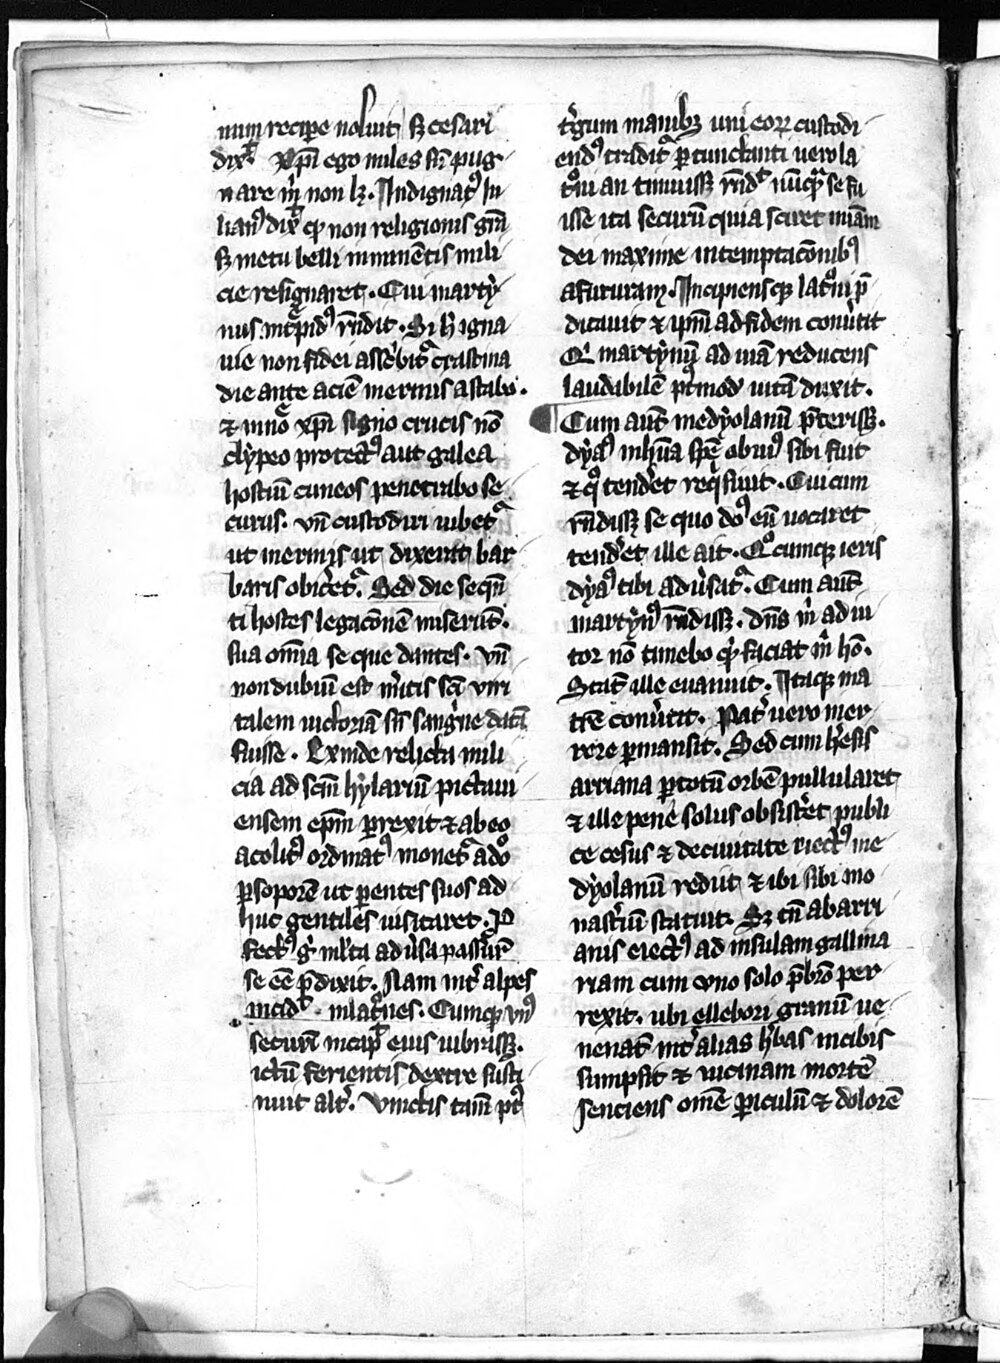 num recipe noluit sz cesari
dixͭ. xp̄i ego miles su̅ pug
nare m̄ non lz. Indignatꝰ Iu
lianꝰ dixͭ ꝙ non religionis gr̄a
sz metu belli inminentis mili
cie resignaret. Cui marty
nus intᵃpidꝰ r̄ndit. Si h̄ igna
uie non fidei asc̄bitᵃ crastina
die ante aciē inermis astabo.
⁊ in noīe xp̄i signo crucis nō
clypeo protectꝰ aut galea
hostiū cuneos penetrabo se
curus. vn̄ custodiri iubetᵃ
ut inermis ut dixerat bar
baris obic̄etᵃ. Sed die seq̄n
ti hostes legac̄onē miserūt.
sua om̄ia se que dantes. vn̄
non dubiū est m̄itis sc̄i viri
talem uictoriā sn̄ sangⁱne datā
fuisse. Exinde relicta mili
cia ad sc̄m hylariū pictaui
ensem ep̄m ꝑrexit ⁊ ab eo
acolitꝰ ordinatꝰ monetᵃ a dō
ꝑ soporē ut ꝑentes suos ad
huc gentiles uisitaret. P
fectꝰ gͥ ml̄ta adūsa passurū
se eē p̄dixit. Nam int̄ alpes
incidͭ in latͦnes. Cumqꝫ vnꝰ
securī in capͭ eius uibrassꝫ.
ictū ferientis dextre susti
nuit alt̄. Vinctis tam̄ pꝰ
t̄gum manibꝫ uni eoꝝ custodi
endꝰ traditᵃ ꝑcunctanti uero la
tͦni an timuissꝫ r̄ndͭ nūcqᵃ se fu
isse ita securū quia sciret mīam
dei maxime in temptac̄onibꝰ
afuturam. Incipiensqꝫ latͦni p̄
dicauit ⁊ ip̄m ad fidem conūtit
Qͥ martynū ad uiā reducens
laudabilē pꝰtmodū uitā duxit.
Cum aut̄ medyolanū p̄terissꝫ.
dyaꝰ in hūa spē̄ obuiꝰ sibi fuit
⁊ qͦ tend̄et reqⁱsiuit. Cui cum
r̄ndissꝫ se quo dn̄ꝰ eū uocaret
tend̄et ille ait. Qͦcumqꝫ ieris
dyaꝰ tibi adūsatᵃ. Cum aut̄
martynꝰ r̄ndissꝫ. dn̄s m̄ adiu
tor nō timebo qⁱ faciat m̄ hō.
Stat̄ ille euanuit. Itaqꝫ ma
trē conūtit. Pat̄ uero in er
rore ꝑmansit. Sed cum h̄esis
arriana ꝑ totū orbē pullularet
⁊ ille pene solus obsist̄et publi
ce cesus ⁊ de ciuitate eiectꝰ me
dyolanū rediit ⁊ ibi sibi mo
nast̄ium statuit. Sz tn̄ ab arri
anis eiectꝰ ad insulam gallina
riam cum vno solo p̄bro per
rexit. ubi ellebori granū ue
nenatū int̄ alias h̄bas in cibis
sumpsit ⁊ uicinam mortē
senciens om̄e ꝑiculū ⁊ dolorē